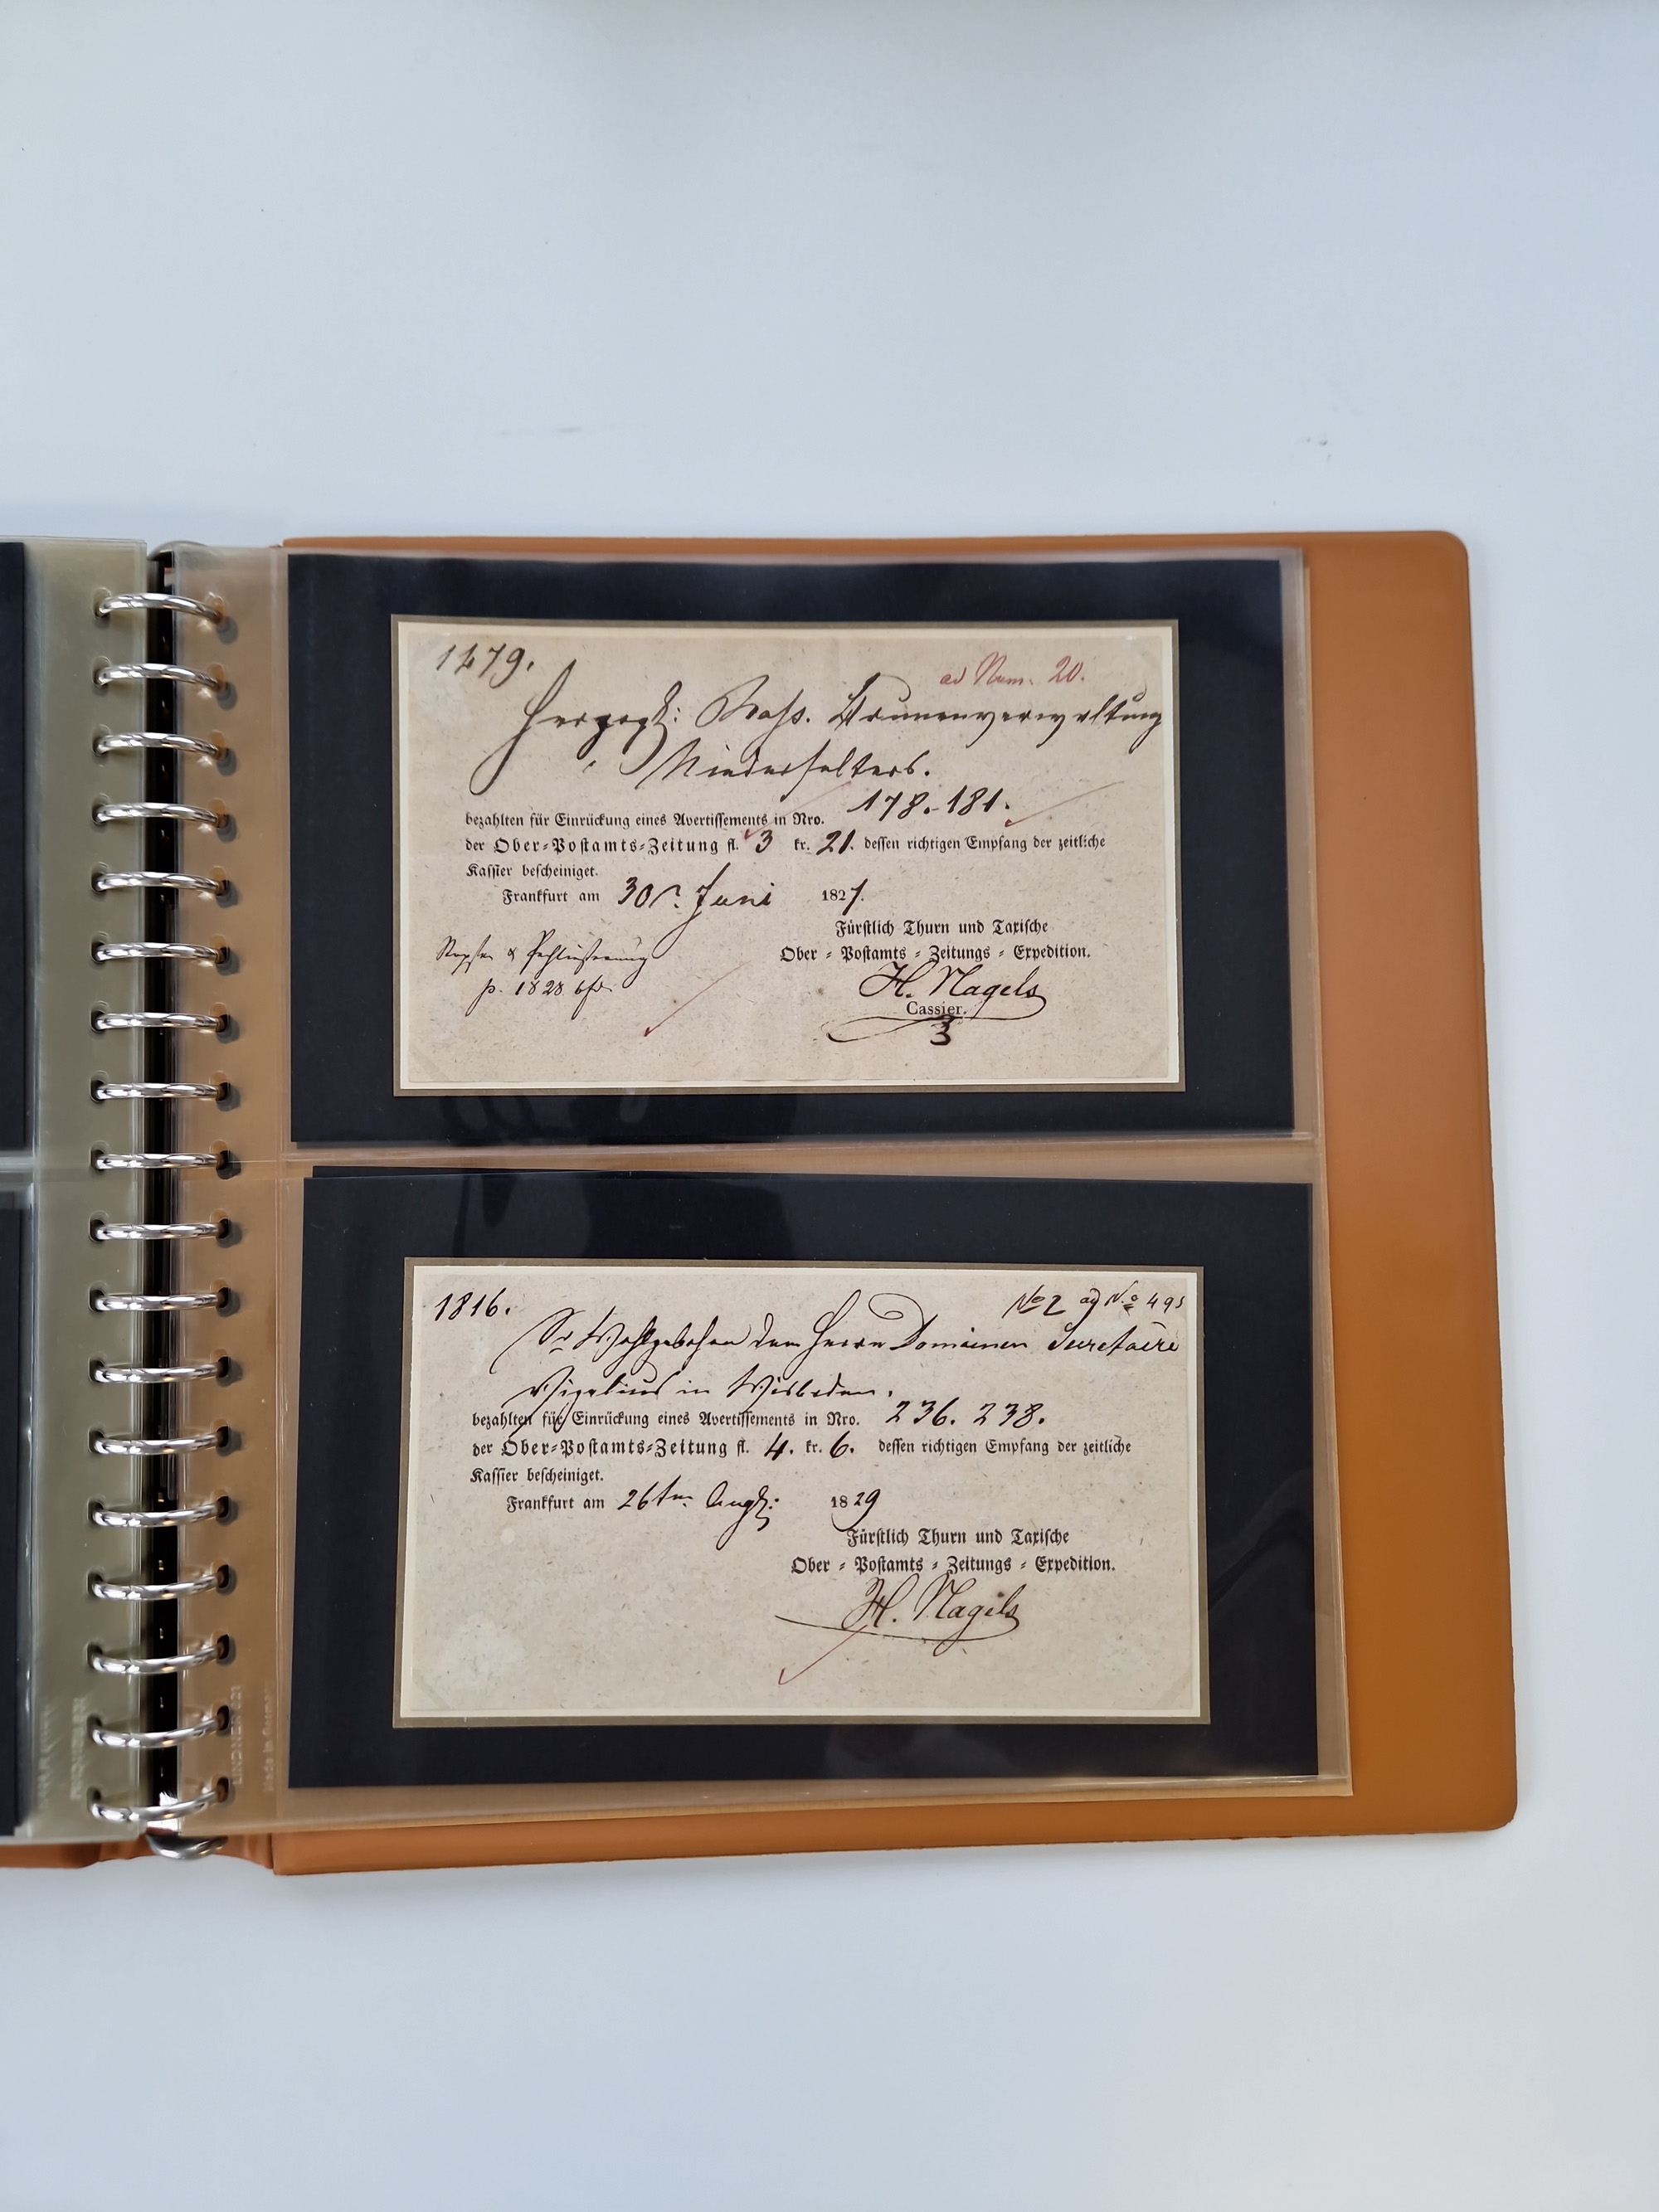 1479.
ad Num. 20.
Herzogl: Nass. Brunnenverwaltung
Niederselters.
bezahlten für Einrückung eines Avertissements in Nro. 178.-181.
der Ober-Postamts-Zeitung fl. 3 kr. 21. dessen richtigen Empfang der zeitliche
Kassier bescheiniget.
Frankfurt am 30n. Juni 1827.
Fürstlich Thurn und Taxische
Ober-Postamts-Zeitungs-Expedition.
H. Nagels
Cassier.
p. 1828
1816.
No 2 ad No 495
Sr Wohlgebohren dem Herrn Domainen Secretaire
Vigelius in Wisbaden.
bezahlten für Einrückung eines Avertissements in Nro. 236. 238.
der Ober-Postamts-Zeitung fl. 4. kr. 6. dessen richtigen Empfang der zeitliche
Kassier bescheiniget.
Frankfurt am 26ten Augt: 1829
Fürstlich Thurn und Taxische
Ober-Postamts-Zeitungs-Expedition.
H. Nagels